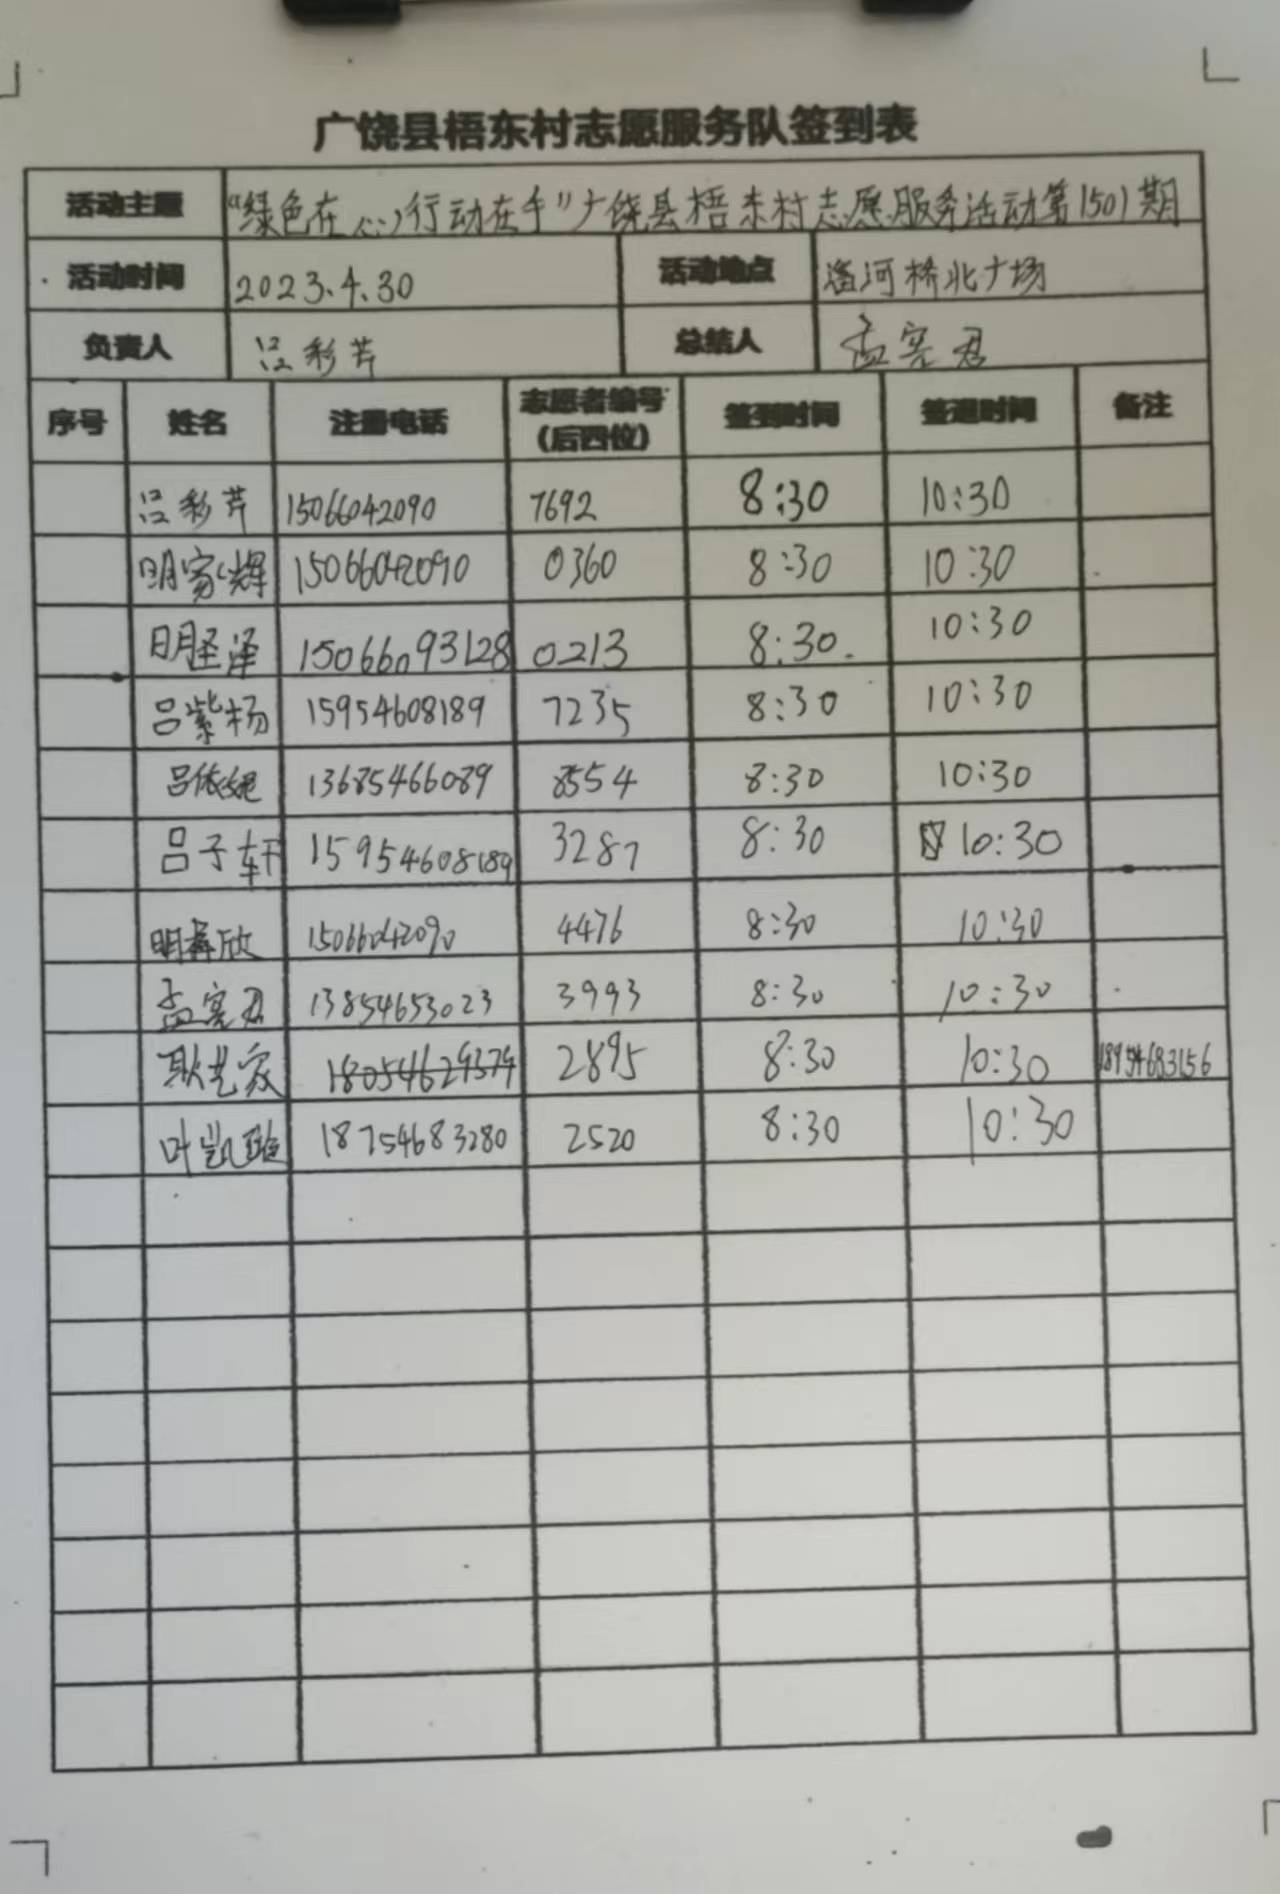 广饶县梧东村志愿服务队签到表
活动主题 “绿色在心，行动在手”广饶县梧东村志愿服务活动第1501期
活动时间 2023.4.30 活动地点 淄河桥北广场
负责人 吕彩芹 总结人 孟宪君
序号 姓名 注册电话 志愿者编号（后四位） 签到时间 签退时间 备注
吕彩芹 15066042090 7692 8:30 10:30
明家辉 15066042090 0360 8:30 10:30
明圣泽 15066093128 0213 8:30. 10:30
吕紫杨 15954608189 7235 8:30 10:30
吕依 13685466089 8554 8:30 10:30
吕子轩 15954608189 3287 8:30 10:30
明 欣 15066042090 4476 8:30 10:30
孟宪君 13854653023 3993 8:30 10:30
耿艺家 18054629379 2895 8:30 10:30 18954683156
叶凯 18754683280 2520 8:30 10:30